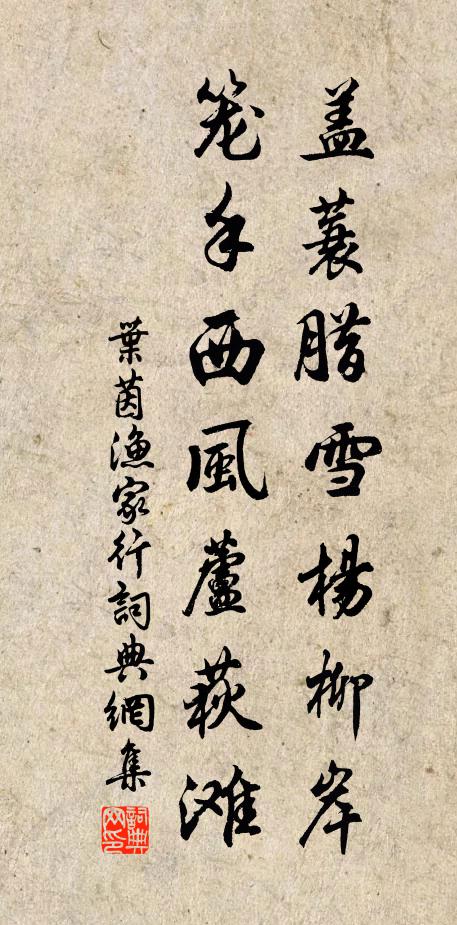 盖蓑腊雪楊柳岸
笼手西風蘆荻滩
葉茵漁家行詞典網集
詞典网印